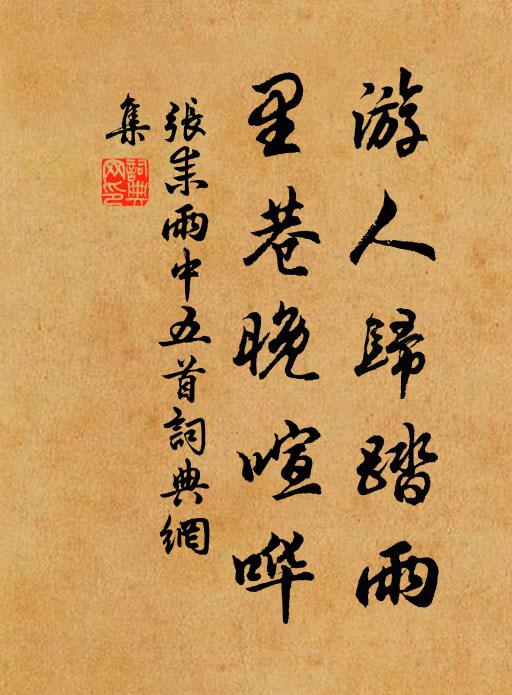 游人歸踏雨
里巷晚喧哗
張耒雨中五首詞典網
集
詞典
网印